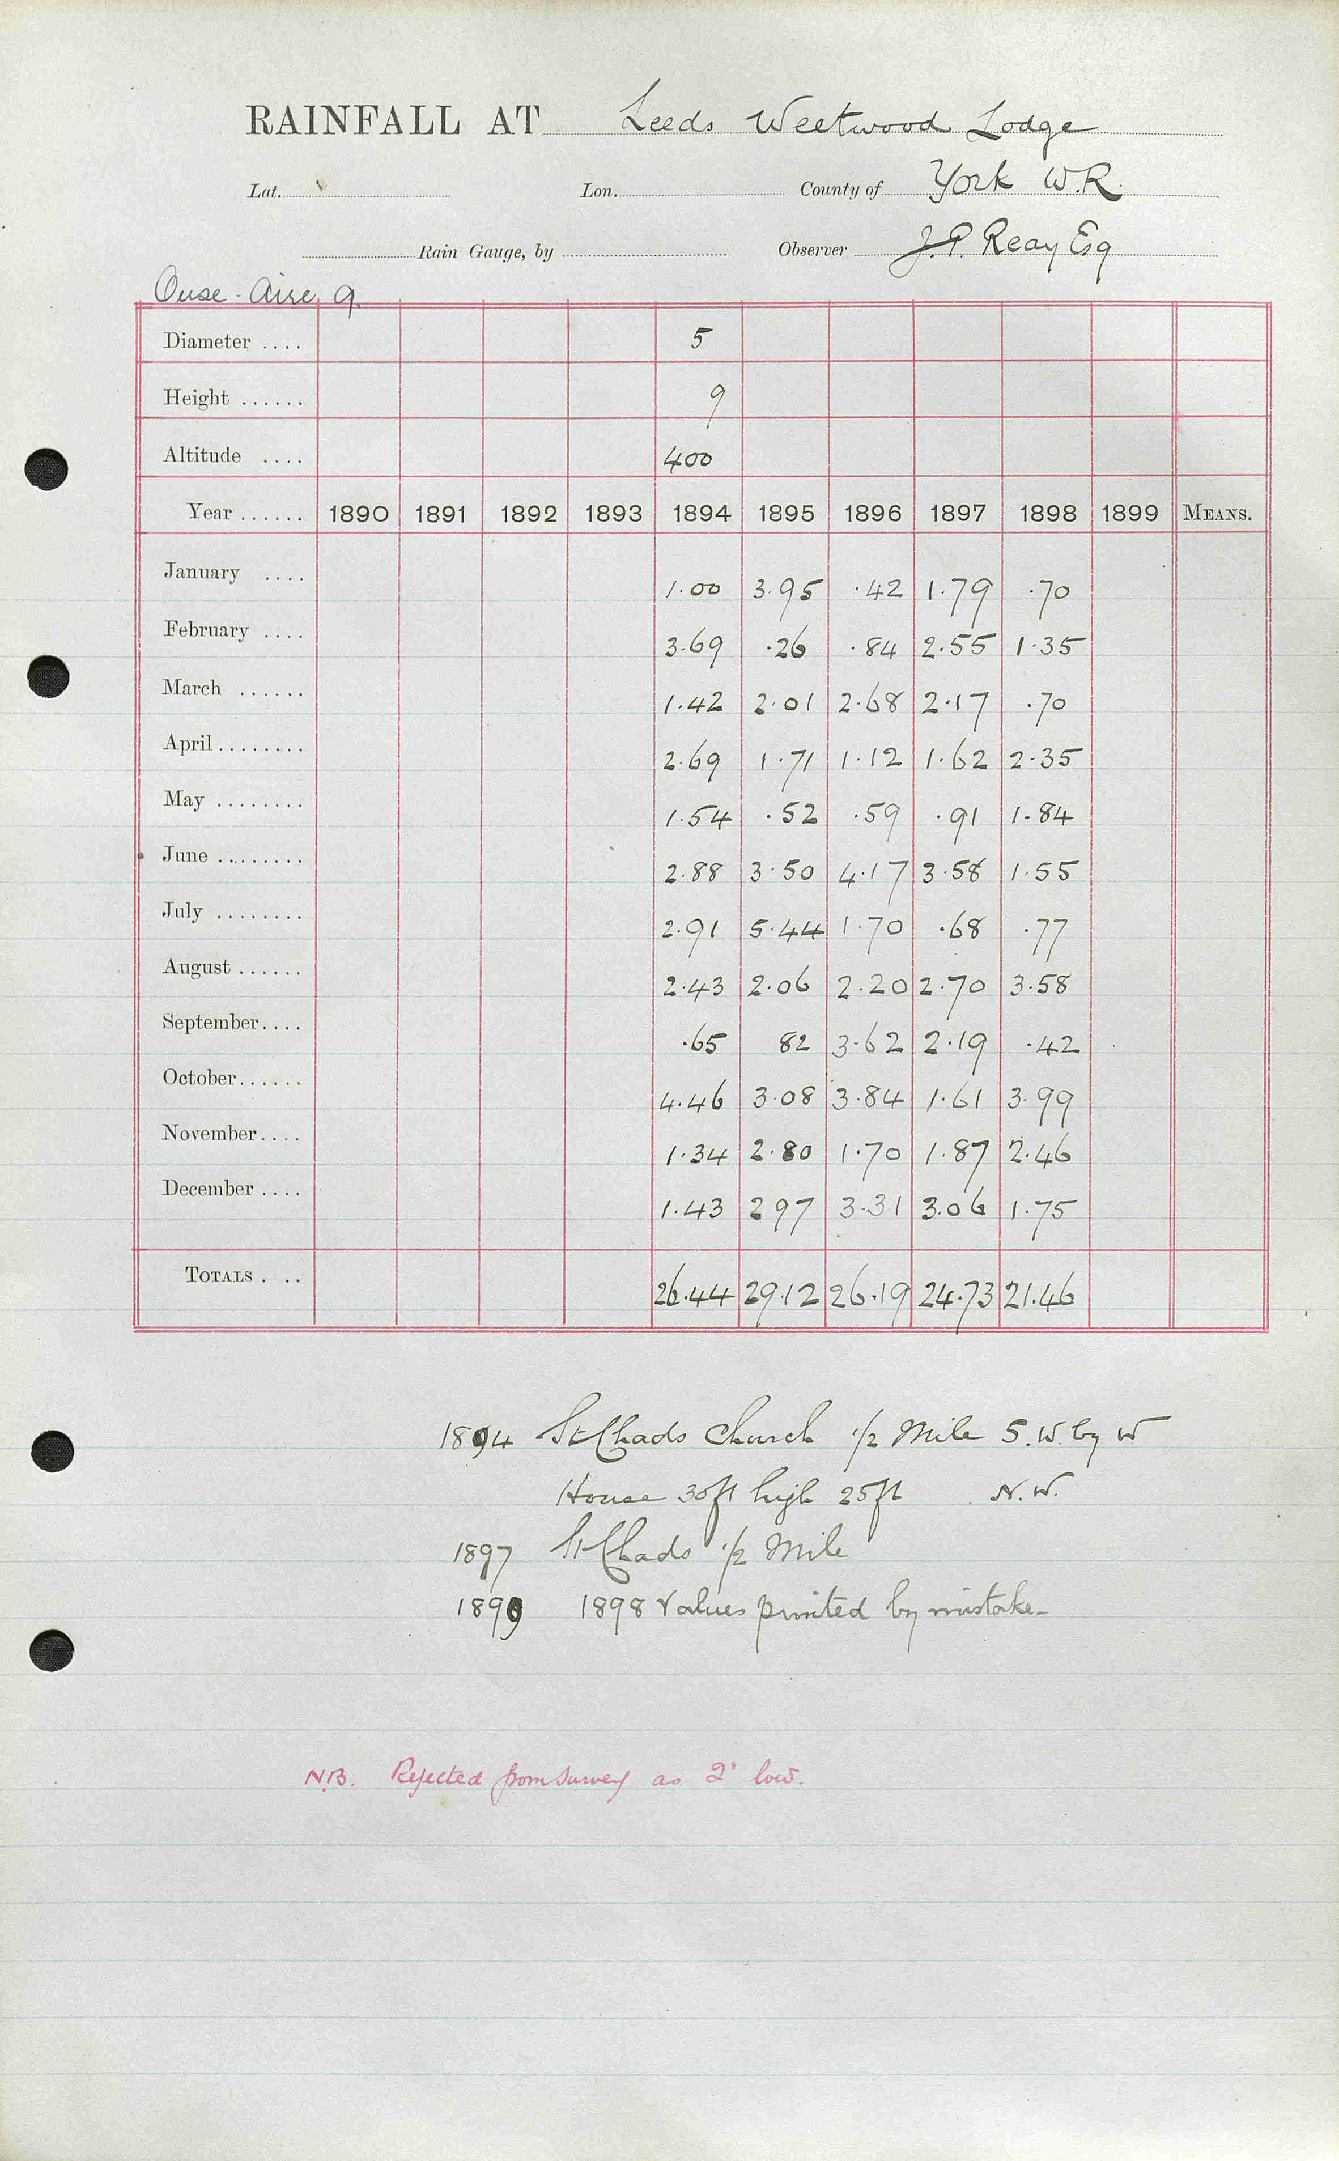 RAINFALL AT Leeds Weetwood Lodge
Lat. Lon. County of York W.R.
Rain Gauge, by Observer J.P. Reay Esq
Ouse-Aire 9.
Diameter .... 5
Height ...... 9
Altitude .... 400
Year ...... 1890 1891 1892 1893 1894 1895 1896 1897 1898 1899 MEANS.
January .... 1.00 3.95 .42 1.79 .70
February .... 3.69 .26 .84 2.55 1.35
March ...... 1.42 2.01 2.68 2.17 .70
April ........ 2.69 1.71 1.12 1.62 2.35
May ........ 1.54 .52 .59 .91 1.84
June ........ 2.88 3.50 4.17 3.58 1.55
July ........ 2.91 5.44 1.70 .68 .77
August ...... 2.43 2.06 2.20 2.70 3.58
September .... .65 82 3.62 2.19 .42
October ...... 4.46 3.08 3.84 1.61 3.99
November .... 1.34 2.80 1.70 1.87 2.46
December .... 1.43 2 97 3.31 3.06 1.75
TOTALS . .. 26.44 29.12 26.19 24.73 21.46
1894 St Chads Church 1/2 Mile S.W. by W
House 30ft high 25ft N.W.
1897 St Chads 1/2 Mile
1899 1898 Values printed by mistake-
N.B. Rejected from Survey as 2" low.